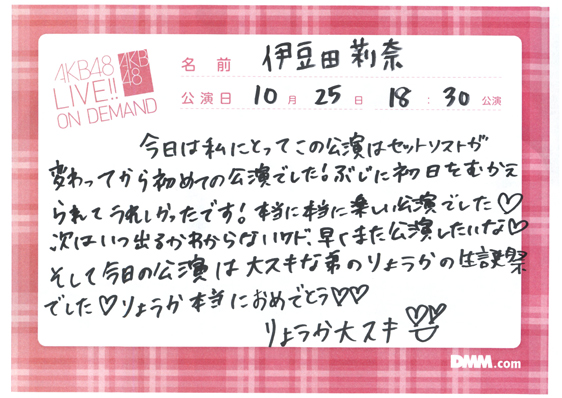 AKB48
LIVE!!
ON DEMAND
AKB
48
名 前 伊豆田莉奈
公演日 10 月 25 日 18 : 30 公演
今日は私にとってこの公演はセットリストが
変わってから初めての公演でした!ぶじに初日をむかえ
られてうれしかったです!本当に本当に楽しい公演でした♡
次はいつ出るかわからないけど、早くまた公演したいな♡
そして今日の公演は大スキな弟のりょうかの生誕祭
でした♡りょうか本当におめでとう♡♡
りょうか大スキ
DMM.com